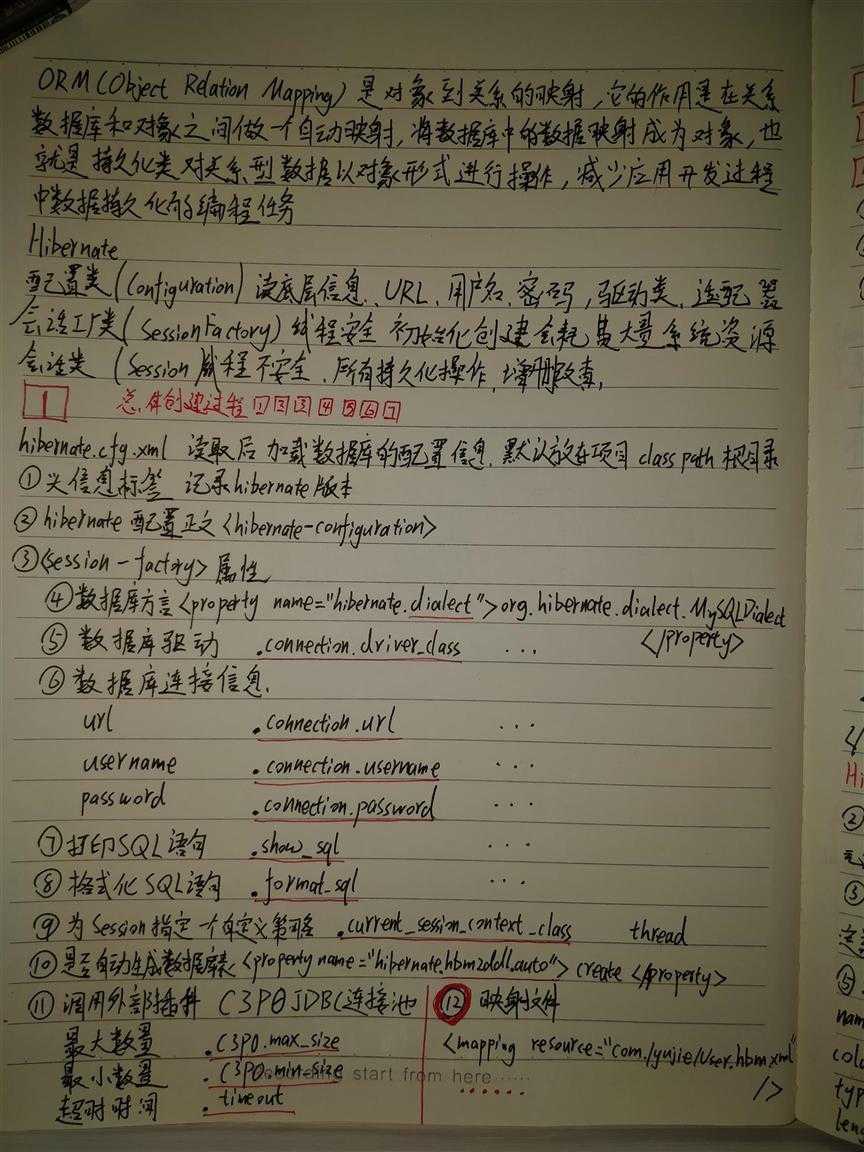 ORM(Object Relation Mapping)是对象到关系的映射,它的作用是在关系
数据库和对象之间做一个自动映射,将数据库中的数据映射成为对象,也
就是持久化类对关系型数据以对象形式进行操作,减少应用开发过程
中数据持久化的编程任务
Hibernate
配置类(Configuration)读底层信息、URL、用户名、密码,驱动类、适配器
会话工厂类(SessionFactory)线程安全 初始化创建会耗其大量系统资源
会话类 (Session)线程不安全、所有持久化操作,增删改查,
1 总体创建过程 1 2 3 4 5 6 7
hibernate.cfg.xml 读取后加载数据库的配置信息.默认放在项目 class path 根目录
①头信息标签 记录hibernate版本
②hibernate配置正文<hibernate-configuration>
③<session-factory>属性
④数据库方言<property name="hibernate.dialect">org.hibernate.dialect.MySQLDialect
</property>
⑤数据库驱动 .connection.driver_class ...
⑥数据库连接信息.
url .connection.url ...
username .connection.username ...
password .connection.password ...
⑦打印SQL语句 .show_sql ...
⑧格式化SQL语句 .format_sql ...
⑨为Session指定一个自定义策略 .current_session_context_class thread
⑩是否自动生成数据库表<property name="hibernate.hbm2ddl.auto">create</property>
⑪调用外部插件 C3P0JDBC连接池
最大数量 .C3P0.max_size
最小数量 .C3P0.min_size
超时时间 .timeout
⑫映射文件
<mapping resource="com/yujie/User.hbm.xml"
/>
......
start from here .....
Hi
②
③
⑤
nam
colu
typ
leng